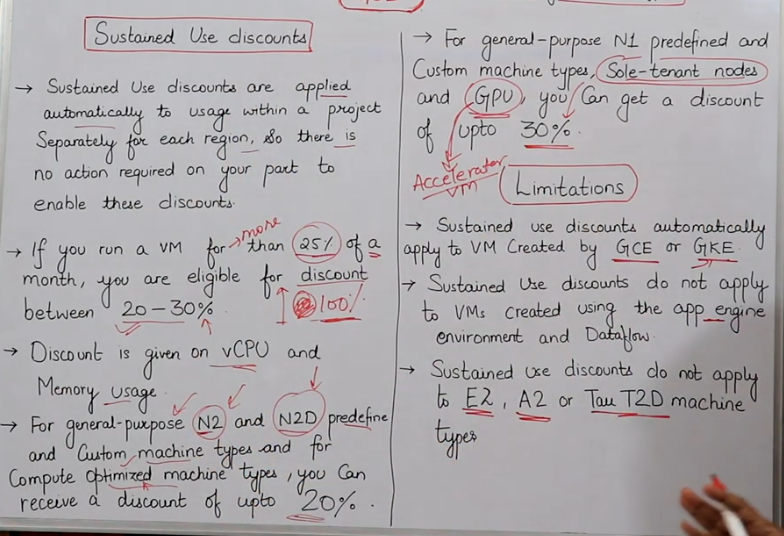 Sustained Use discounts
→ Sustained Use discounts are applied
automatically to usage within a project
Separately for each region, so there is
no action required on your part to
enable these discounts.
→ If you run a VM for → more than 25% of a
month, you are eligible for discount
between 20-30%. 100%
→ Discount is given on vCPU and
Memory usage.
→ For general-purpose N2 and N2D predefine
and Custom machine types and for
Compute optimized machine types, you Can
receive a discount of upto 20%.
→ For general-purpose N1 predefined and
Custom machine types, Sole-tenant nodes
and GPU, you Can get a discount
of upto 30%.
Accelerator
VM
Limitations
→ Sustained use discounts automatically
apply to VM Created by GCE or GKE.
→ Sustained Use discounts do not apply
to VMs created using the app engine
environment and Dataflow.
→ Sustained use discounts do not apply
to E2, A2 or Tau T2D machine
types